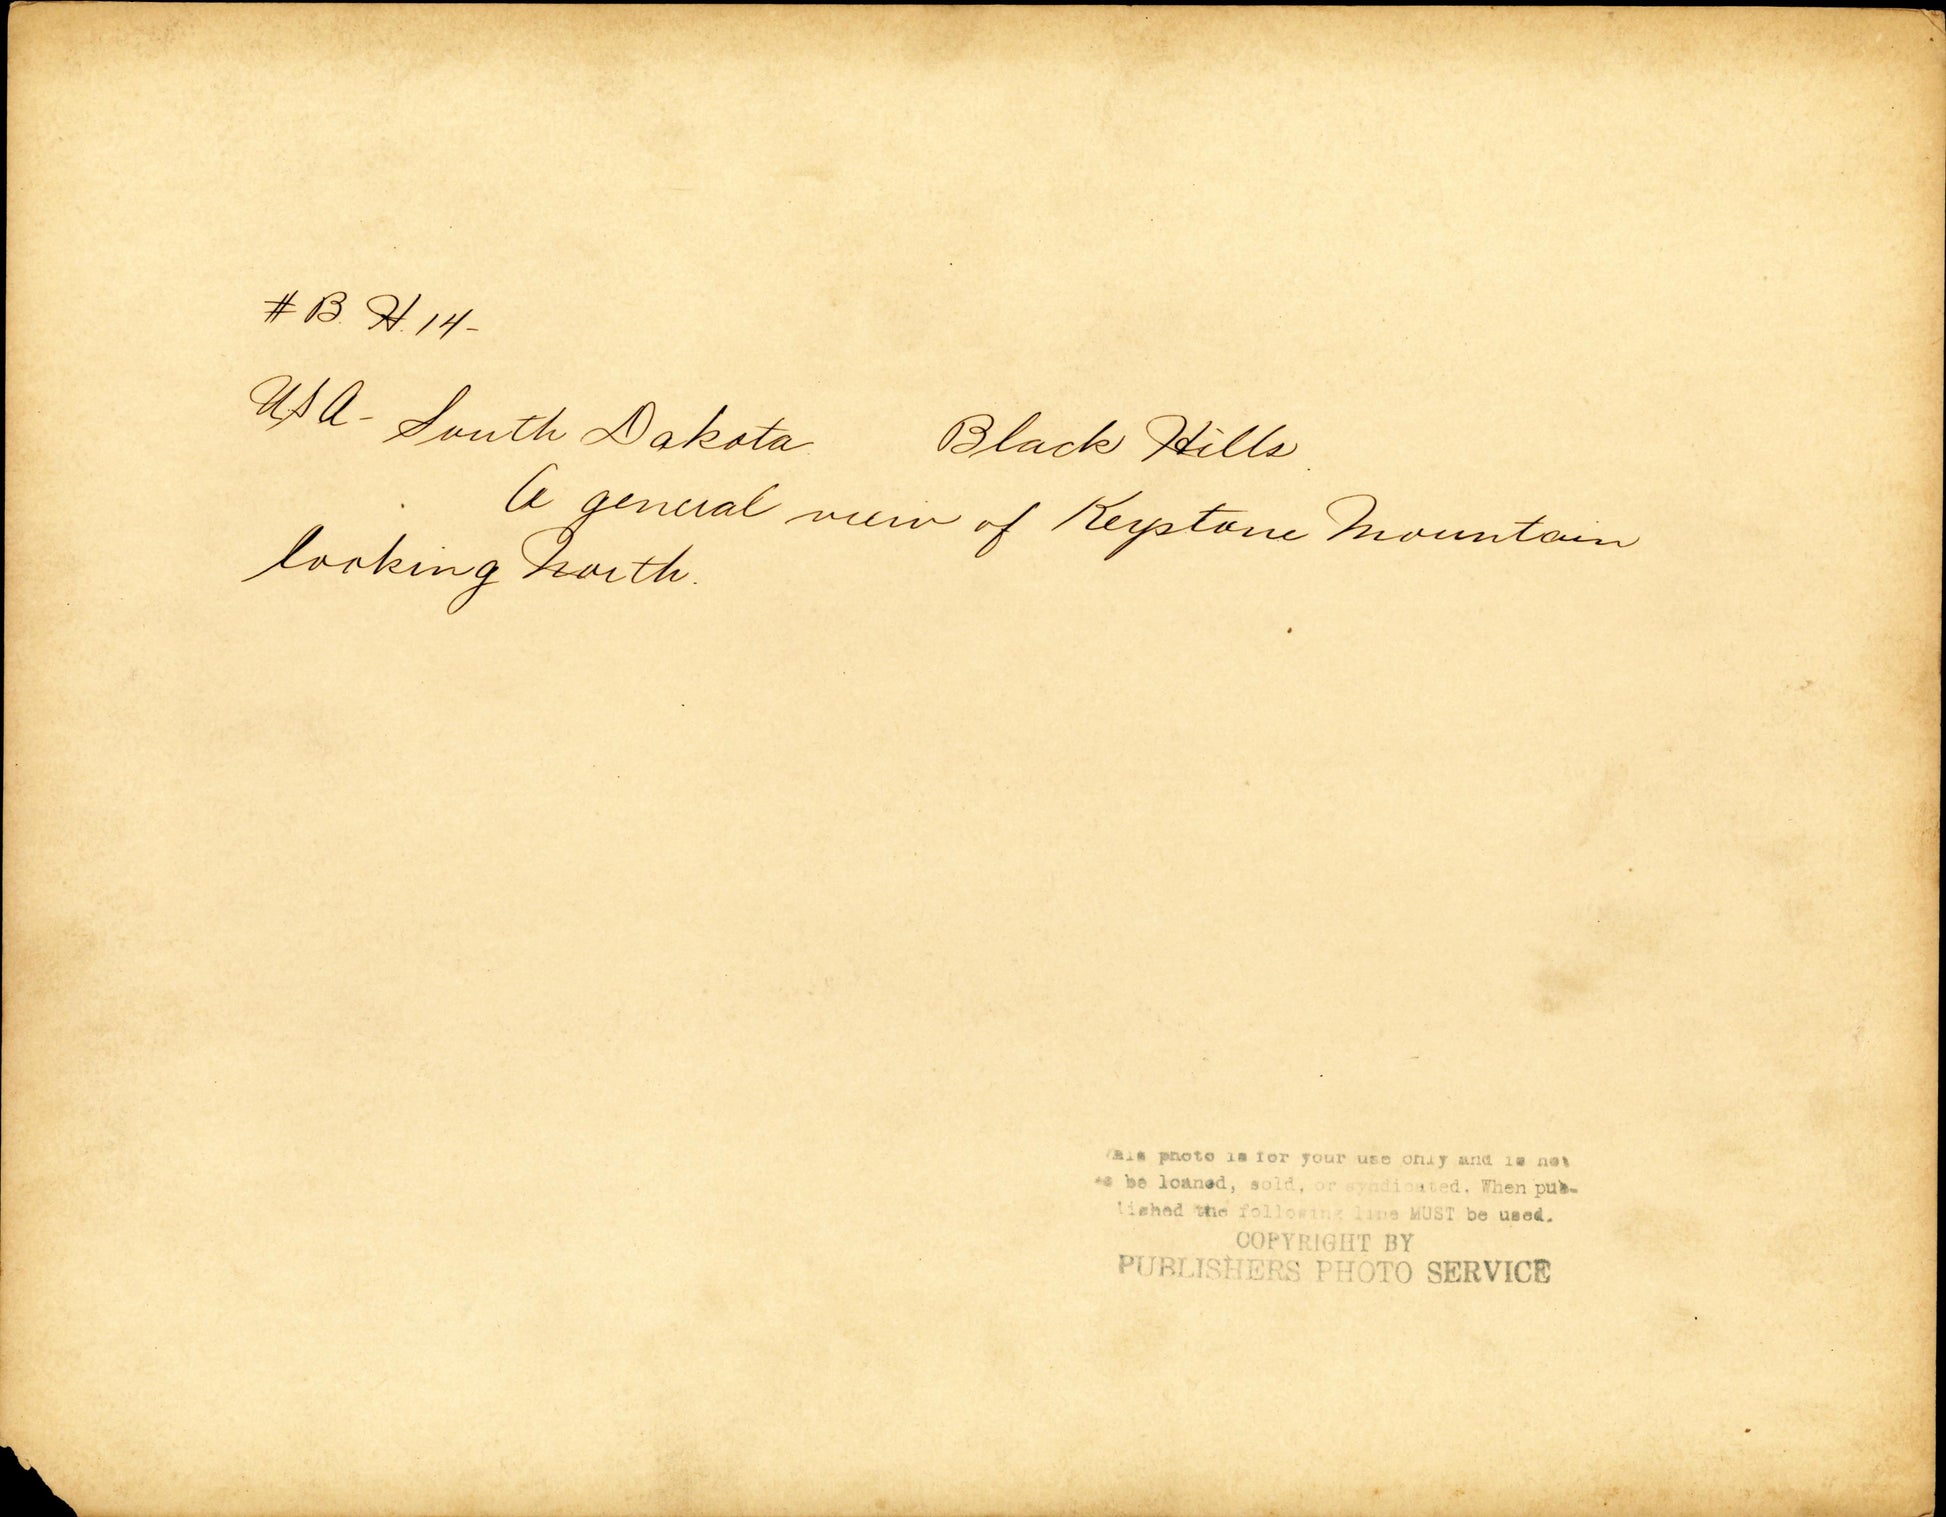 # B. H. 14-
USA- South Dakota. Black Hills.
A general view of Keystone Mountain
looking North.
This photo is for your use only and is not
to be loaned, sold, or syndicated. When pub-
lished the following line MUST be used.
COPYRIGHT BY
PUBLISHERS PHOTO SERVICE